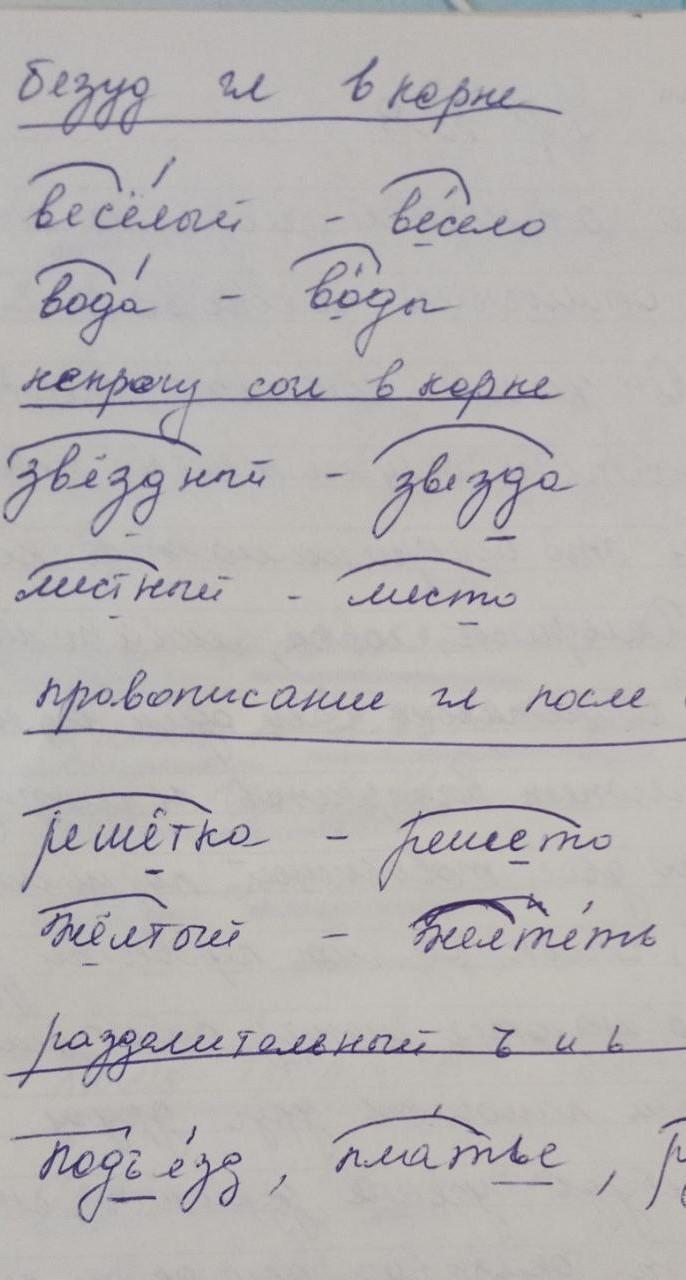 безуд гл в корне
весёлый - весело
вода - воды
непроizу сог в корне
звёздный - звезда
местный - место
правописание гл после
решётка - решето
жёлтый - желтеть
разделительный ъ и ь
подъезд, платье,